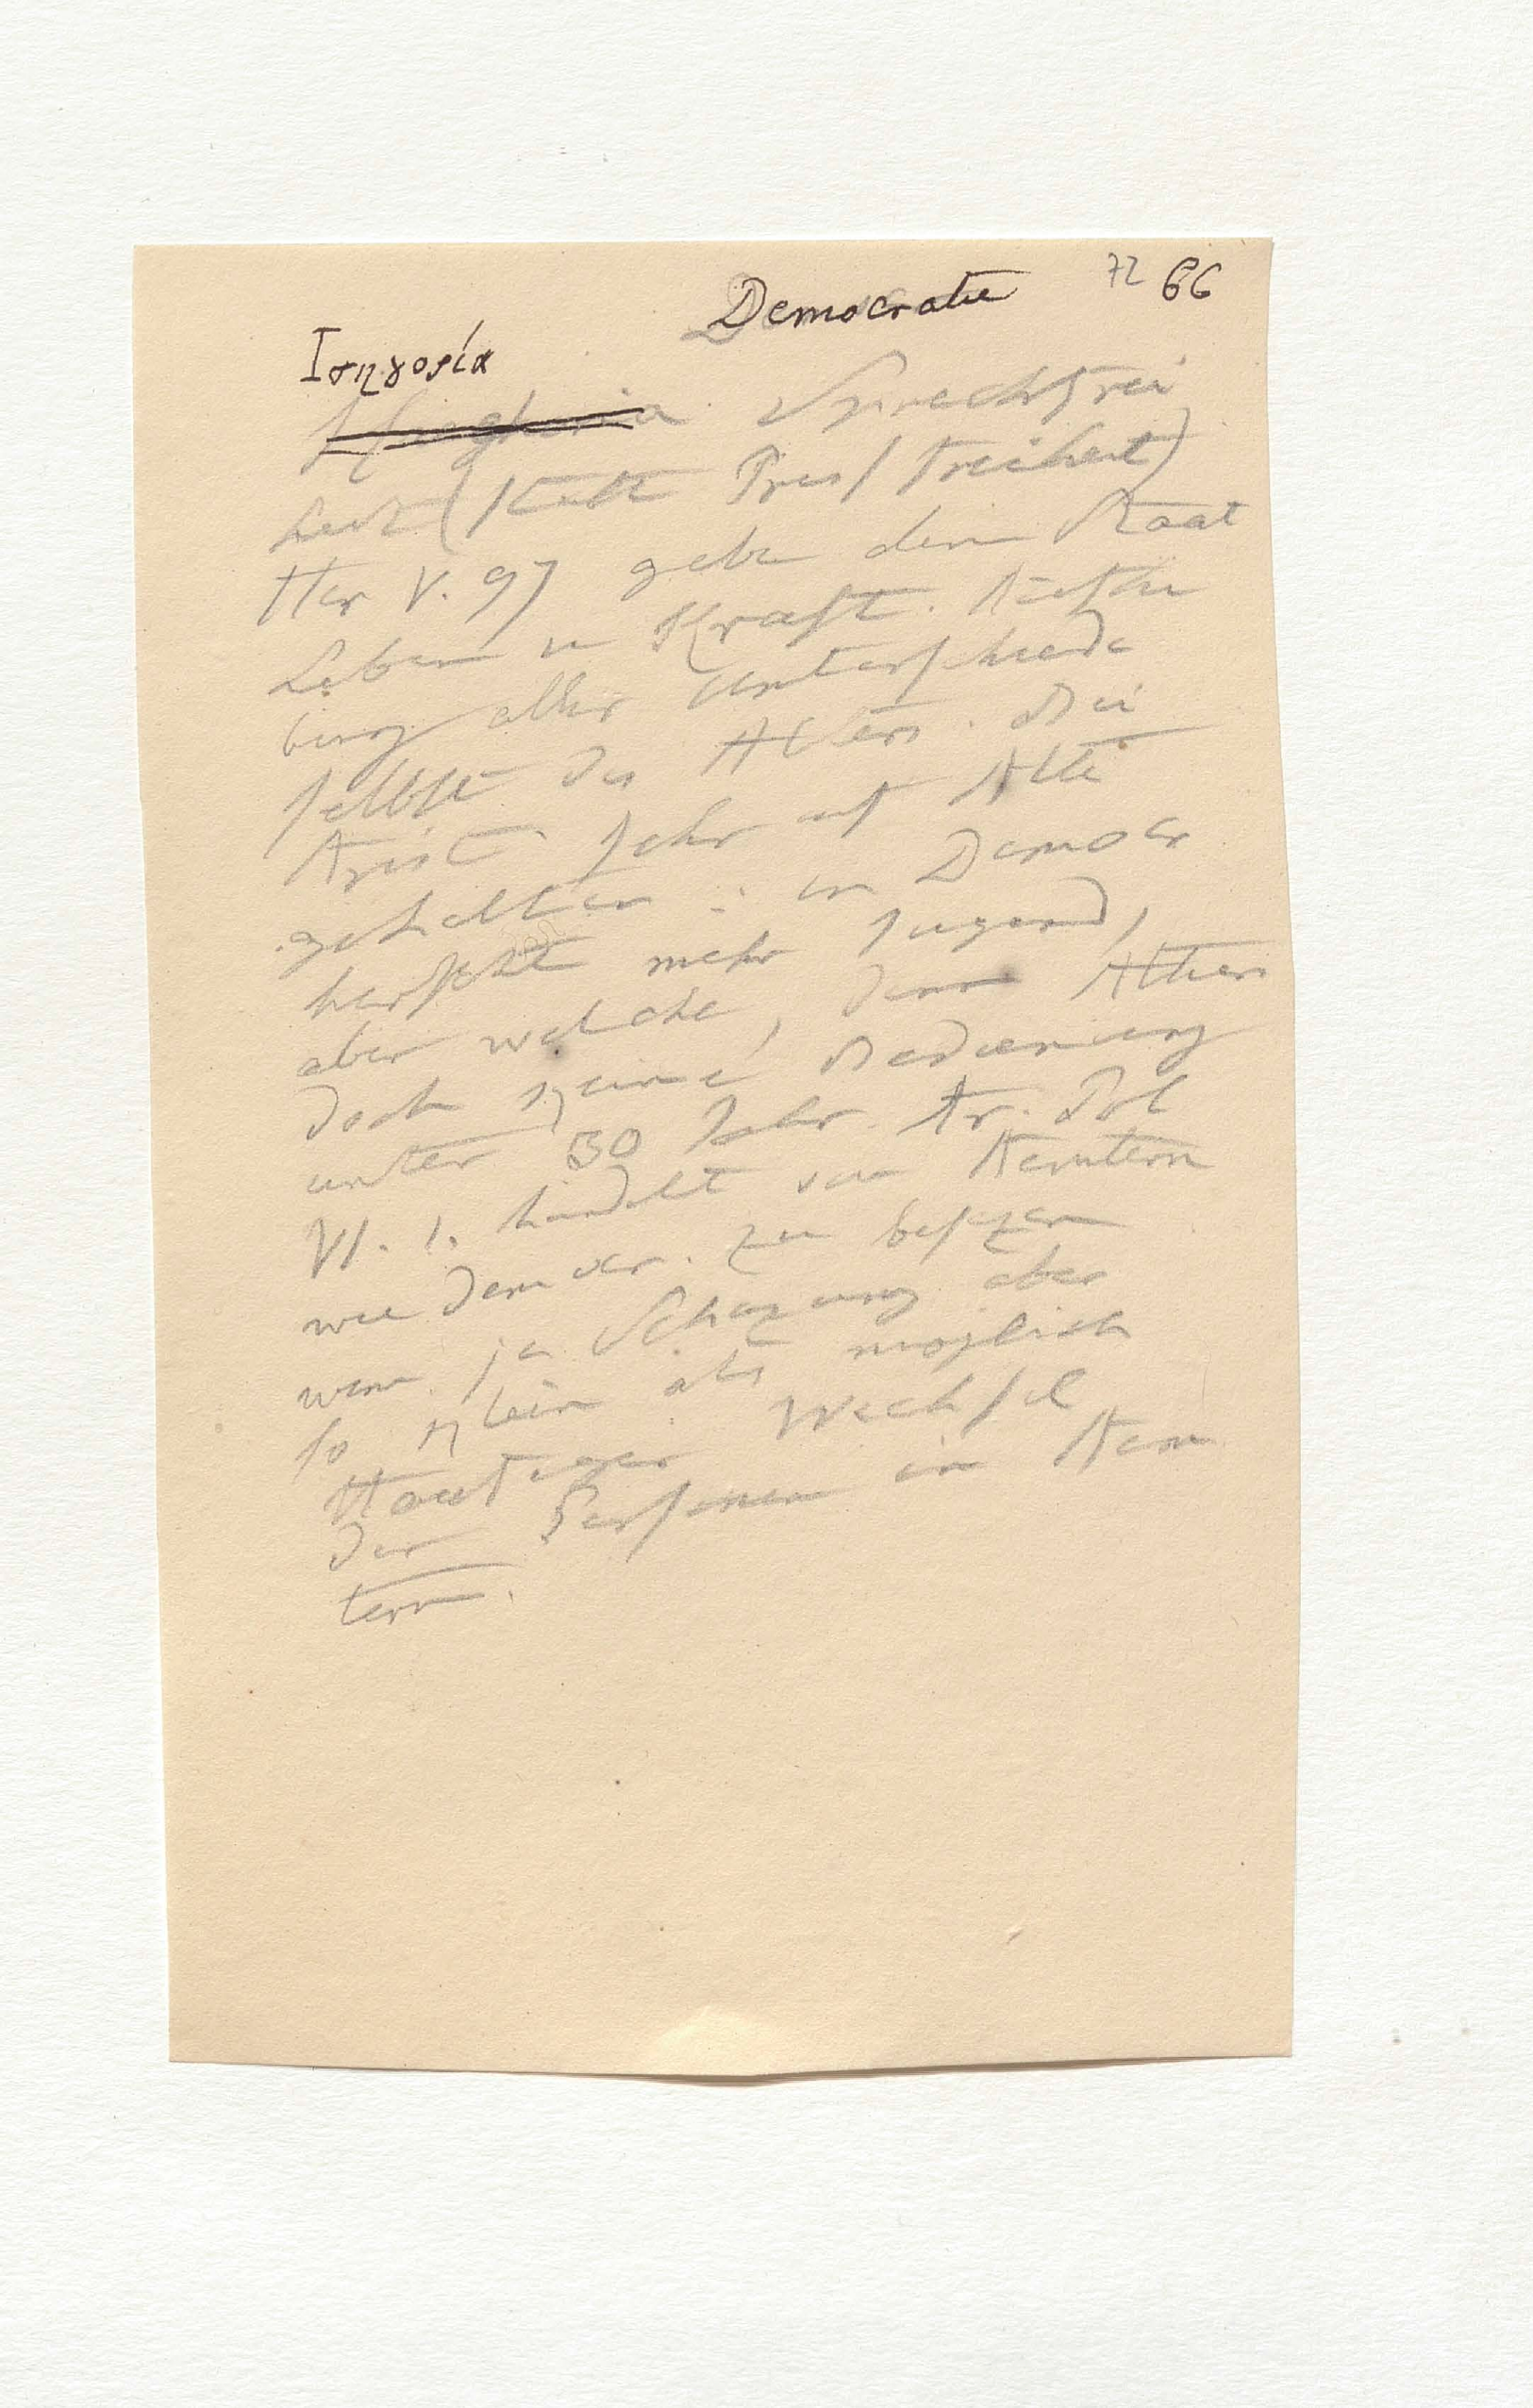 Democratie 72 66
Ισηγορία
Sprechfrei
heit (statt Pressfreiheit)
Her V. 97 gebe dem Staat
Leben u Kraft. Aufhe
bung aller Unterschiede
selbst des Alters. Bei
Arist. sehr auf Alte
gehalten: in Democr
herscht mehr Jugend,
aber welche, denn Athen
doch keine Bedienung
unter 30 Jahr. Ar. Pol
VI. 1. handelt von Aemtern
wie democr. zu besezen
wenn ja Schazung aber
so klein als möglich
Haufiger Wechsel
der Personen in Aem
tern.